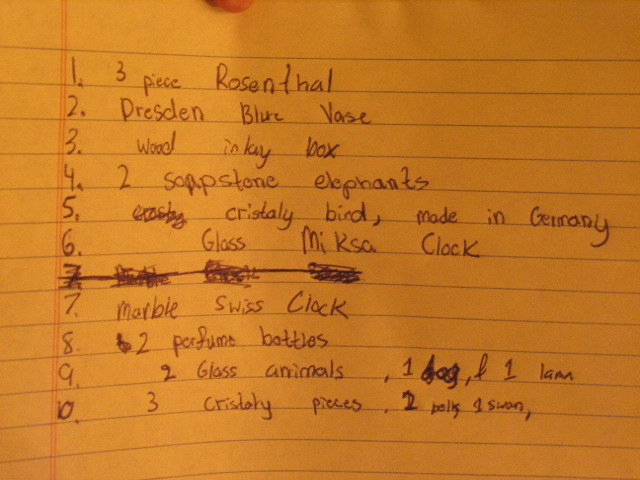 1. 3 piece Rosenthal
2. Dresden Blue Vase
3. wood inlay box
4. 2 soapstone elephants
5. cristaly bird, made in Germany
6. Glass Miksa Clock
7.
7. marble Swiss Clock
8. 2 perfume bottles
9. 2 Glass animals, 1 dog, & 1 lam
10. 3 cristaly pieces. 2 bells 1 swan,